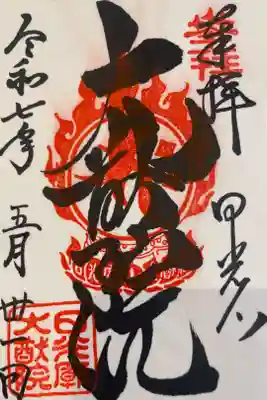 奉拝 日光山
大猷院
令和七年 五月 卅一日
日光廟
大猷院